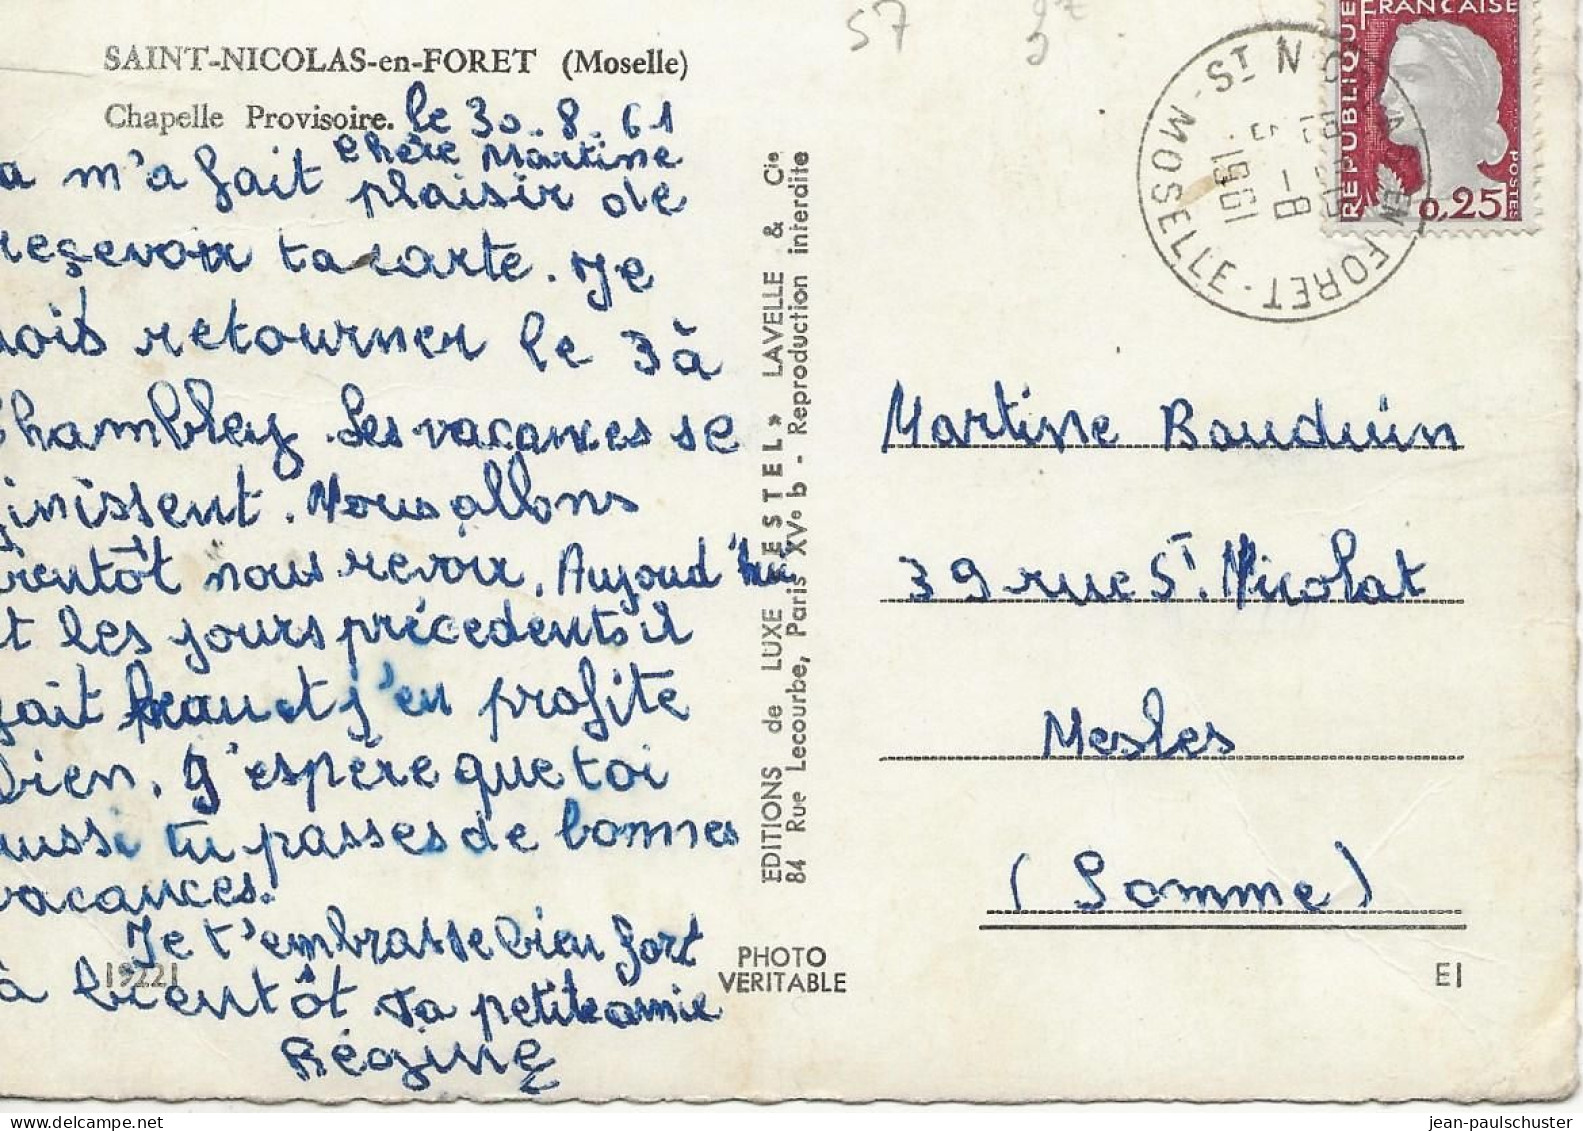 SAINT-NICOLAS-en-FORET (Moselle)
Chapelle Provisoire.
le 30.8.61
Chère Martine
a m'a fait plaisir de
reçevoir ta carte. Je
dois retourner le 3 à
Chambley. Les vacances se
finissent. Nous allons
bientôt nous revoir. Aujoud'hui
et les jours précedents il
fait beau et j'en profite
bien. J'espère que toi
aussi tu passes de bonnes
vacances.
Je t'embrasse bien fort
à bientôt ta petite amie
Régine
19221
EDITIONS de LUXE "ESTEL" LAVELLE & Cie
84 Rue Lecourbe, Paris XVe b - Reproduction interdite
PHOTO
VERITABLE
57
REPUBLIQUE FRANCAISE
POSTES
0,25
ST NICOLAS EN FORET - MOSELLE
1961
Martine Bauduin
39 rue St. Nicolat
Mesles
(Somme)
EI
jean-paulschuster